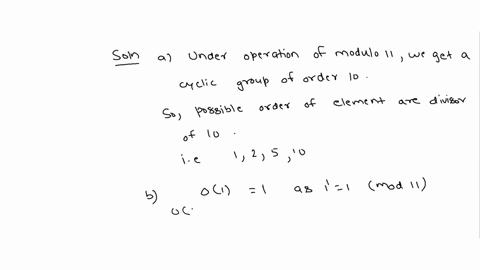 Soln a) Under operation of modulo 11, we get a
cyclic group of order 10.
So, possible order of element are divisor
of 10.
i.e 1, 2, 5, 10
b) O(1) = 1 as 1' = 1 (mod 11)
O(